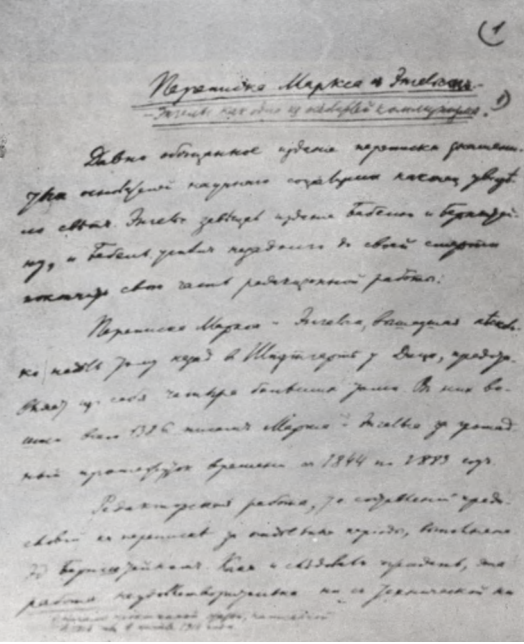 (1
Переписка Маркса с Энгельсом.
— Энгельс как один из основателей коммунизма. 1)
Давно обещанное издание переписки знамени-
тых основателей научного социализма наконец увиде-
ло свет. Энгельс завещал издание Бебелю и Бернштей-
ну, и Бебель успел незадолго до своей смерти
закончить свою часть редакционной работы.
Переписка Маркса и Энгельса, вышедшая несколь-
ко недель тому назад в Штутгарте у Дитца, представ-
ляет из себя четыре больших тома. В них во-
шло всего 1386 писем Маркса и Энгельса за громад-
ный промежуток времени с 1844 по 1883 год.
Редакторская работа, т. е. составление преди-
словий к переписке за отдельные периоды, выполнена
Эд. Бернштейном. Как и следовало ожидать, эта
работа неудовлетворительна ни с технической ни